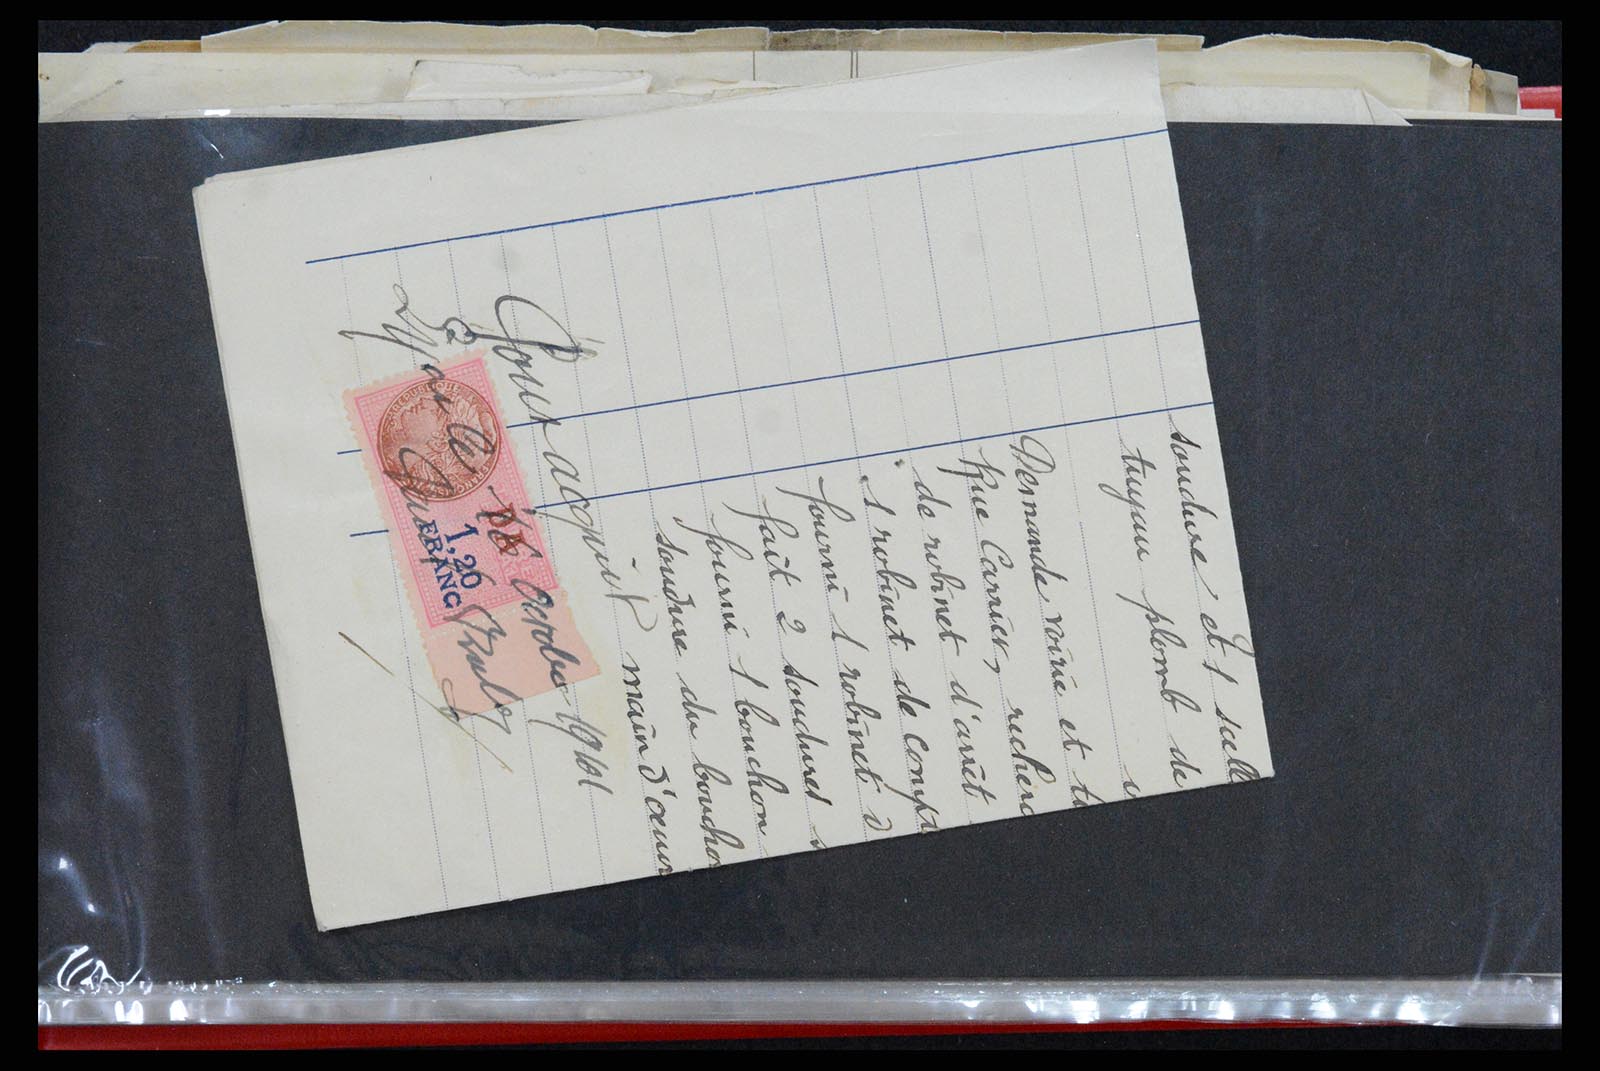 soudure et 1 soud
tuyau plomb de
Demande voirie et t
Rue Carrier, recherc
de robinet d'arrêt
1 robinet de comp
fourni 1 robinet d
fait 2 soudures
fourni 1 bouchon
soudure du boucho
main d'oeuv
Pour acquit
Lyon le 12 octobre 1941
RÉPUBLIQUE
FRANÇAISE
1,20
FRANC